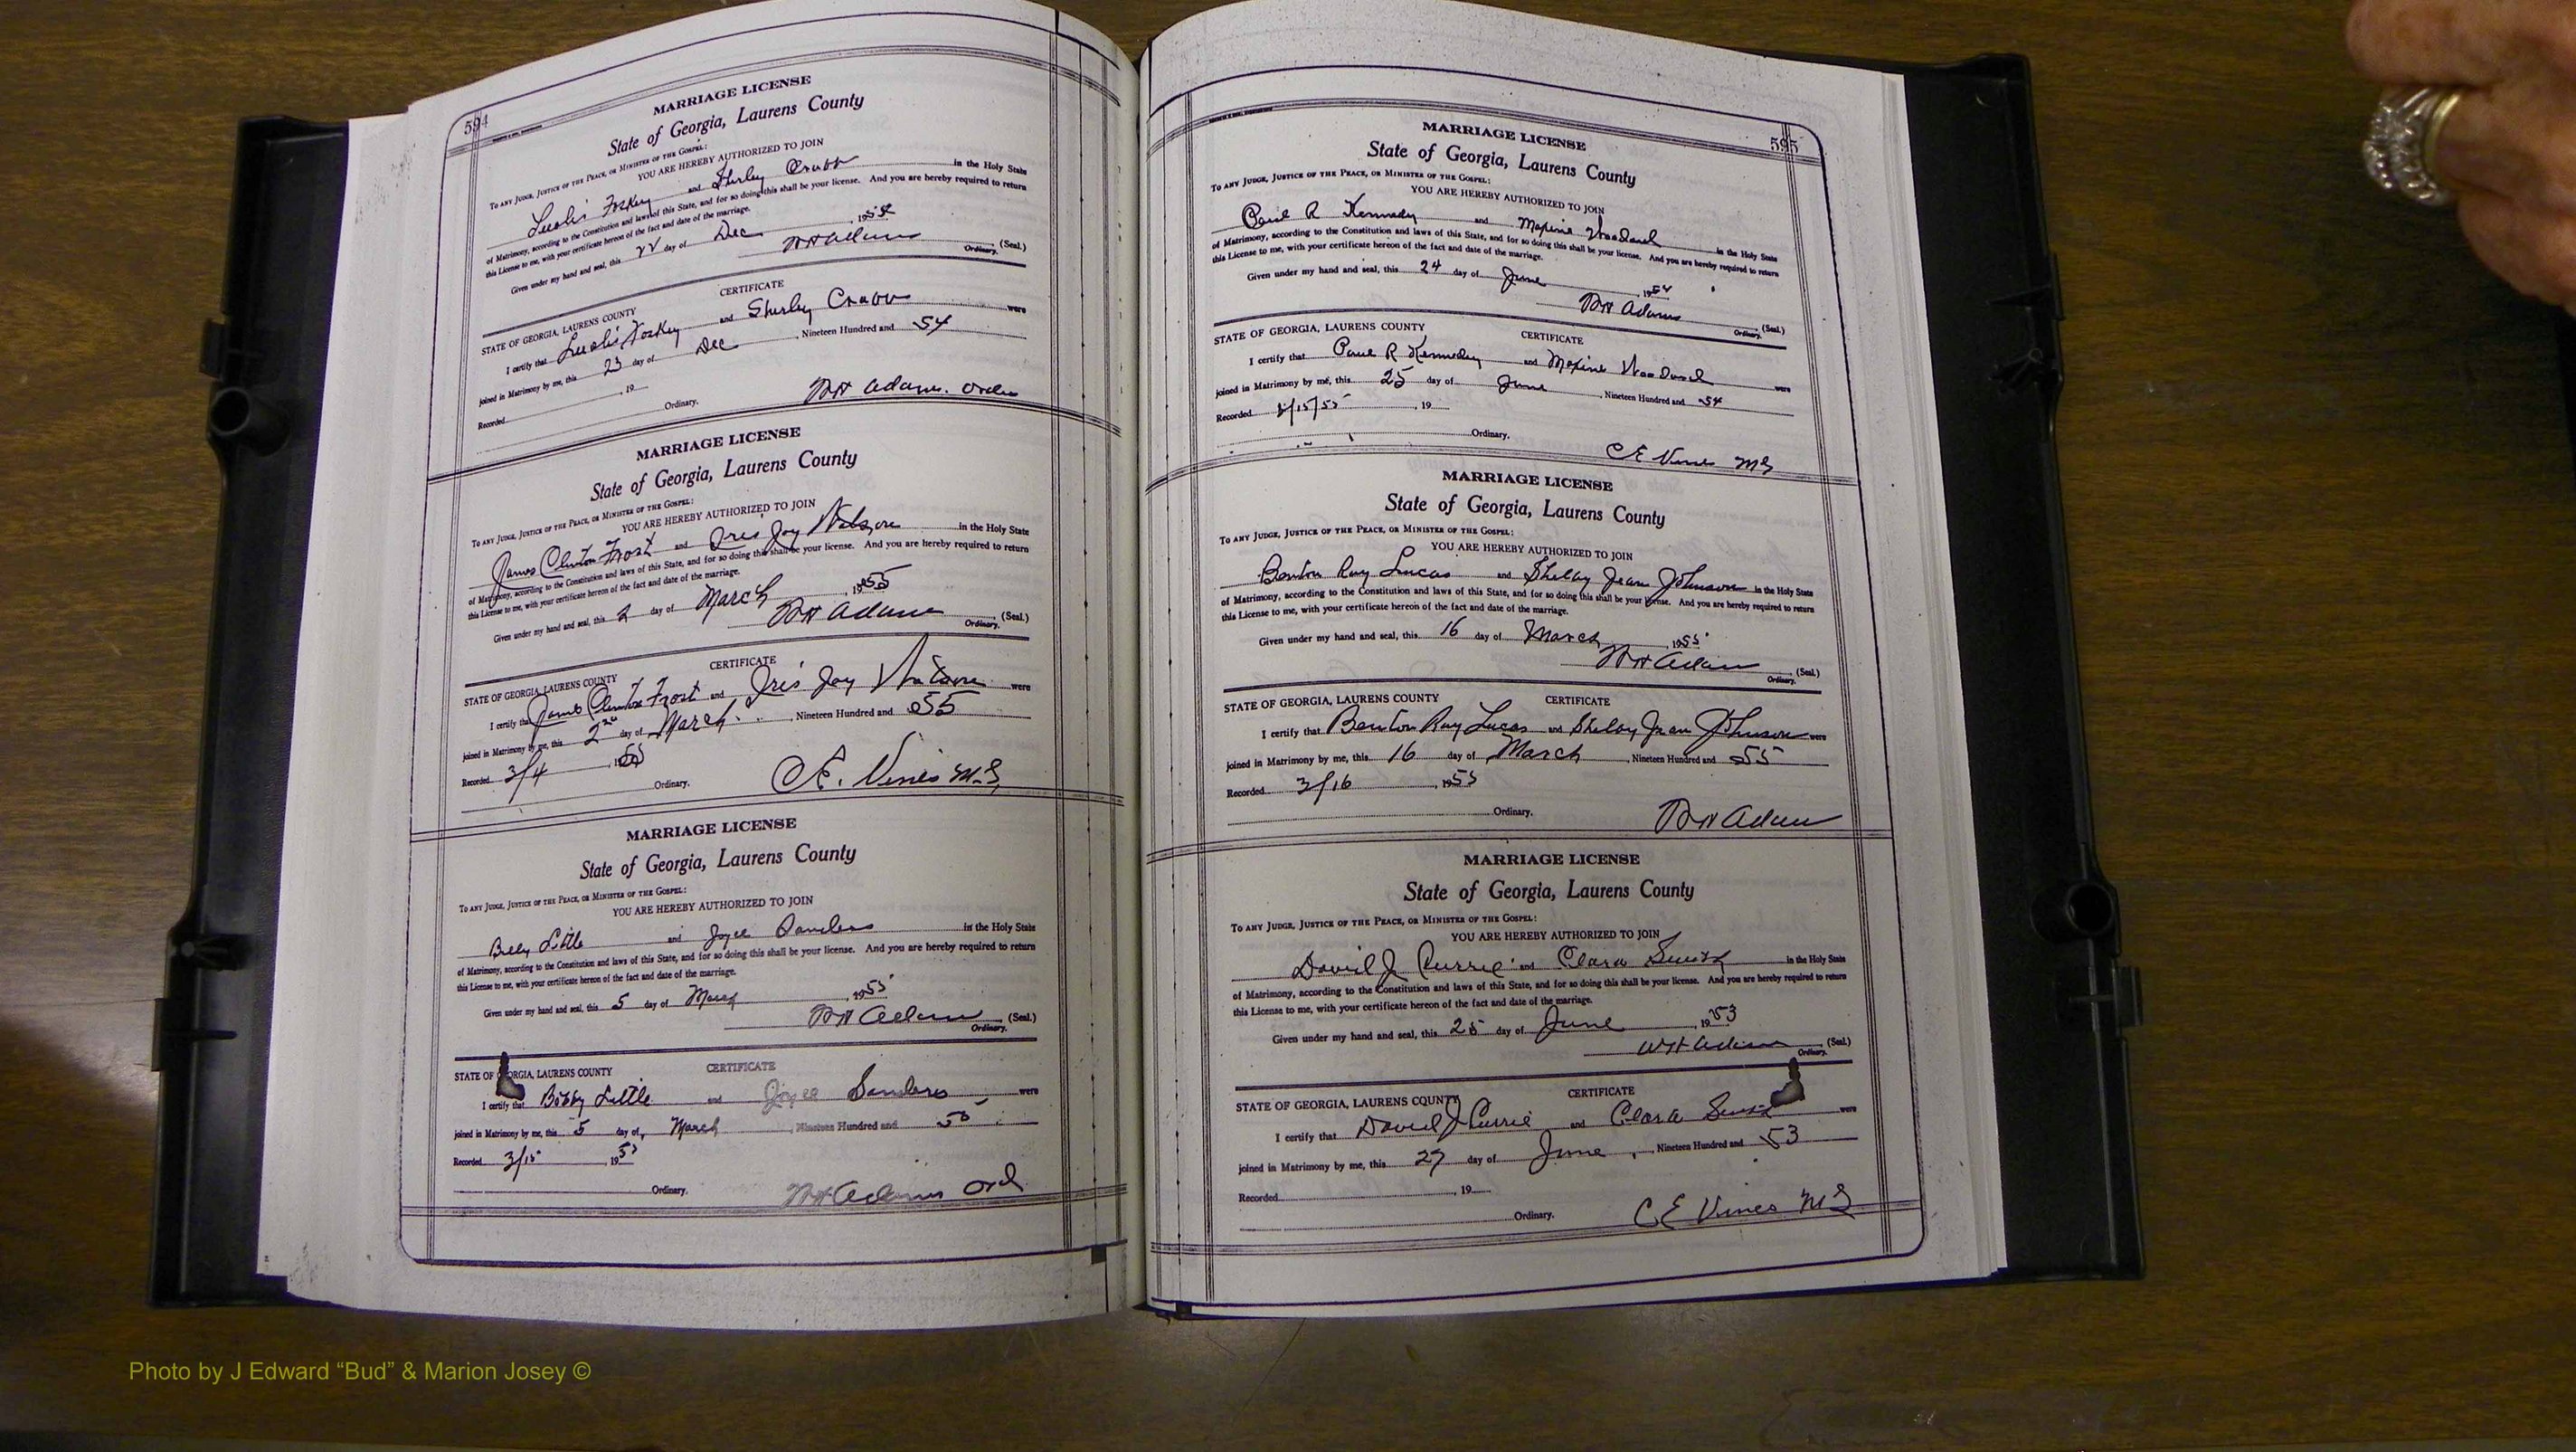 594
MARRIAGE LICENSE
State of Georgia, Laurens County
To any Judge, Justice of the Peace, or Minister of the Gospel:
YOU ARE HEREBY AUTHORIZED TO JOIN
Foskey and Shirley Crabb in the Holy State
of Matrimony, according to the Constitution and laws of this State, and for so doing this shall be your license. And you are hereby required to return
this License to me, with your certificate hereon of the fact and date of the marriage.
Given under my hand and seal, this 22 day of Dec, 1954
Adams (Seal.)
Ordinary.
CERTIFICATE
STATE OF GEORGIA, LAURENS COUNTY
I certify that Foskey and Shirley Crabb were
joined in Matrimony by me, this 23 day of Dec, Nineteen Hundred and 54
Recorded , 19
Ordinary.
Adams.
MARRIAGE LICENSE
State of Georgia, Laurens County
To any Judge, Justice of the Peace, or Minister of the Gospel:
YOU ARE HEREBY AUTHORIZED TO JOIN
James Clinton Frost and Iris Joy Watson in the Holy State
of Matrimony, according to the Constitution and laws of this State, and for so doing this shall be your license. And you are hereby required to return
this License to me, with your certificate hereon of the fact and date of the marriage.
Given under my hand and seal, this 2 day of March, 1955
Adams (Seal.)
Ordinary.
CERTIFICATE
STATE OF GEORGIA, LAURENS COUNTY
I certify that James Clinton Frost and Iris Joy Watson were
joined in Matrimony by me, this 2nd day of March, Nineteen Hundred and 55
Recorded 3/4, 1955
Ordinary.
C.E. Vines M.G.
MARRIAGE LICENSE
State of Georgia, Laurens County
To any Judge, Justice of the Peace, or Minister of the Gospel:
YOU ARE HEREBY AUTHORIZED TO JOIN
Little and Joyce Sanders in the Holy State
of Matrimony, according to the Constitution and laws of this State, and for so doing this shall be your license. And you are hereby required to return
this License to me, with your certificate hereon of the fact and date of the marriage.
Given under my hand and seal, this 5 day of March, 1955
Adams (Seal.)
Ordinary.
CERTIFICATE
STATE OF GEORGIA, LAURENS COUNTY
I certify that Bobby Little and Joyce Sanders were
joined in Matrimony by me, this 5 day of March, Nineteen Hundred and 55
Recorded 3/15, 1955
Ordinary.
Adams Ord
595
MARRIAGE LICENSE
State of Georgia, Laurens County
To any Judge, Justice of the Peace, or Minister of the Gospel:
YOU ARE HEREBY AUTHORIZED TO JOIN
Paul R Kennedy and Maxine Woodard in the Holy State
of Matrimony, according to the Constitution and laws of this State, and for so doing this shall be your license. And you are hereby required to return
this License to me, with your certificate hereon of the fact and date of the marriage.
Given under my hand and seal, this 24 day of June, 1954
Adams (Seal.)
Ordinary.
STATE OF GEORGIA, LAURENS COUNTY
CERTIFICATE
I certify that Paul R Kennedy and Maxine Woodard were
joined in Matrimony by me, this 25 day of June, Nineteen Hundred and 54
Recorded 3/15/55, 19
Ordinary.
CE Vines MG
MARRIAGE LICENSE
State of Georgia, Laurens County
To any Judge, Justice of the Peace, or Minister of the Gospel:
YOU ARE HEREBY AUTHORIZED TO JOIN
Benton Ray Lucas and Shelby Jean Johnson in the Holy State
of Matrimony, according to the Constitution and laws of this State, and for so doing this shall be your license. And you are hereby required to return
this License to me, with your certificate hereon of the fact and date of the marriage.
Given under my hand and seal, this 16 day of March, 1955
Adams (Seal.)
Ordinary.
STATE OF GEORGIA, LAURENS COUNTY
CERTIFICATE
I certify that Benton Ray Lucas and Shelby Jean Johnson were
joined in Matrimony by me, this 16 day of March, Nineteen Hundred and 55
Recorded 3/16, 1955
Ordinary.
Adams
MARRIAGE LICENSE
State of Georgia, Laurens County
To any Judge, Justice of the Peace, or Minister of the Gospel:
YOU ARE HEREBY AUTHORIZED TO JOIN
David J Currie and Clara in the Holy State
of Matrimony, according to the Constitution and laws of this State, and for so doing this shall be your license. And you are hereby required to return
this License to me, with your certificate hereon of the fact and date of the marriage.
Given under my hand and seal, this 25 day of June, 1953
WH Adams (Seal.)
Ordinary.
CERTIFICATE
STATE OF GEORGIA, LAURENS COUNTY
I certify that David J Currie and Clara were
joined in Matrimony by me, this 27 day of June, Nineteen Hundred and 53
Recorded , 19
Ordinary.
CE Vines MG
Photo by J Edward “Bud” & Marion Josey ©